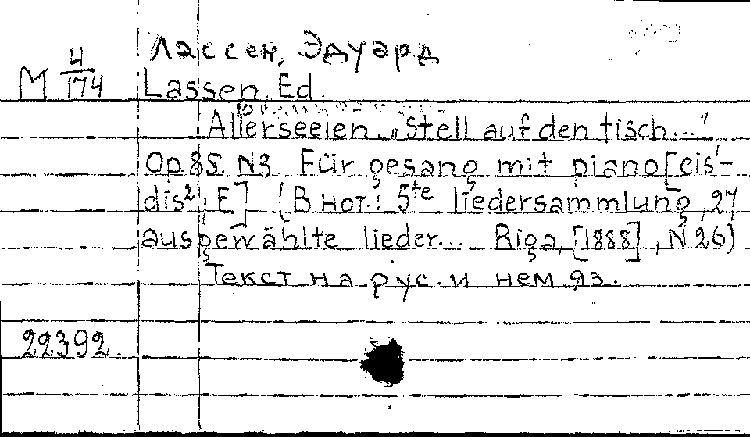 Лассен, Эдуард
М 4/174 Lassen, Ed.
Allerseelen. „Stell auf den tisch..."
Op 85 N3 Für gesang mit piano [cis¹-
dis², E] (В нот.: 5te liedersammlung, 27
ausgewählte lieder... Riga, [1888], N 26)
Текст на рус. и нем. яз.
22392.